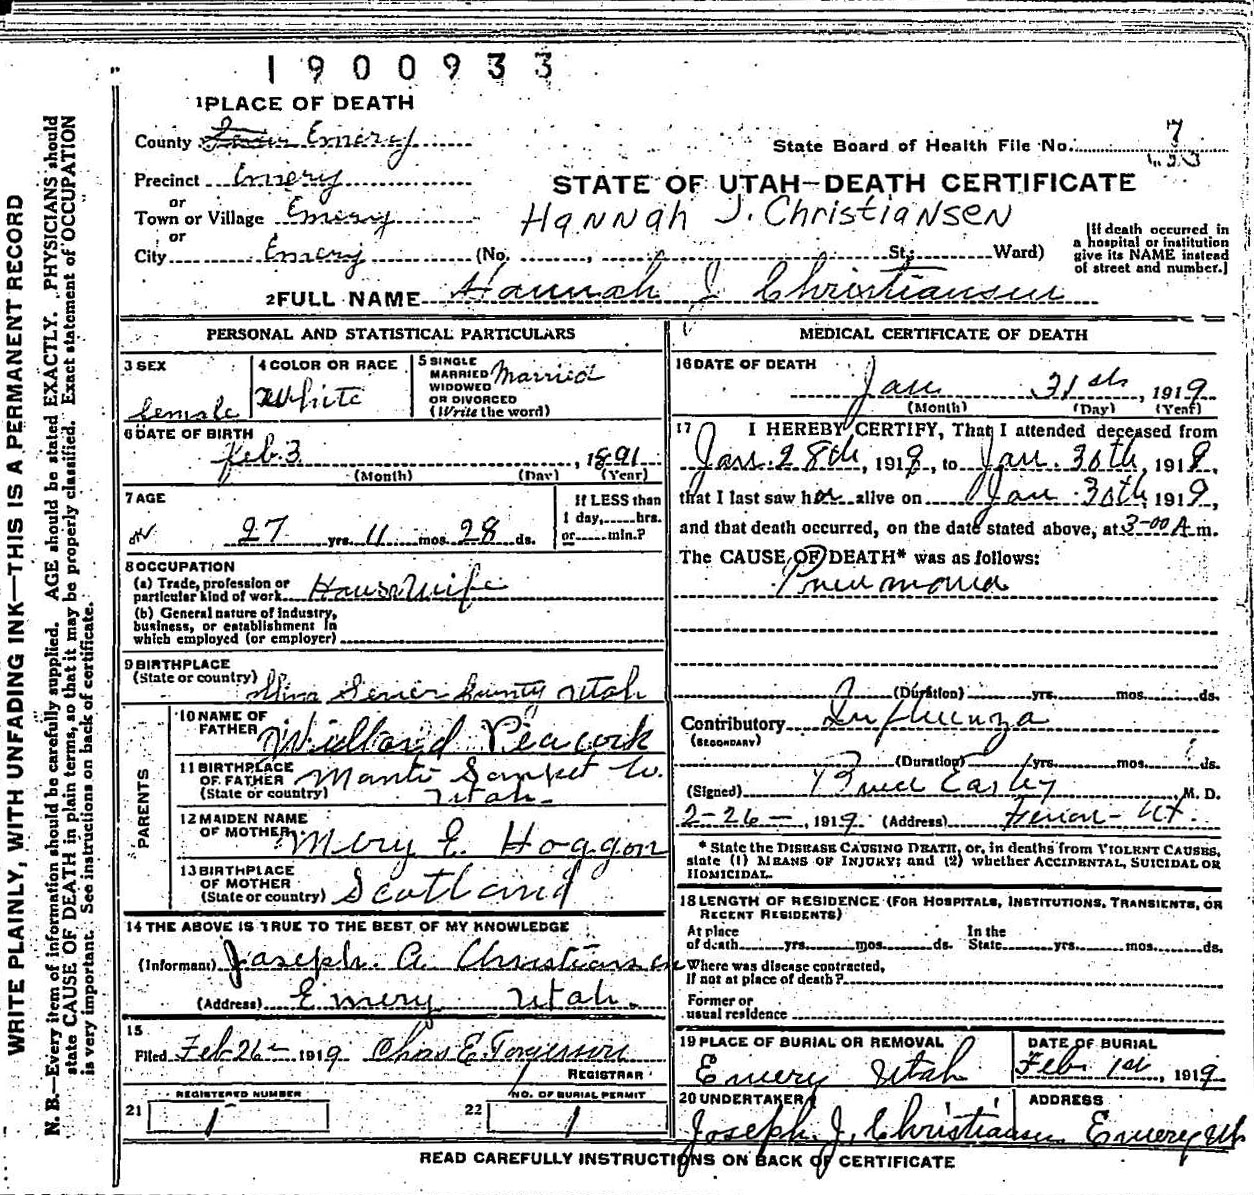 1900933
1 PLACE OF DEATH
County Emery
State Board of Health File No. 7
Precinct Emery
or
Town or Village Emery
or
City Emery (No. , St.; Ward)
STATE OF UTAH—DEATH CERTIFICATE
Hannah J. Christiansen
[If death occurred in
a hospital or institution
give its NAME instead
of street and number.]
2 FULL NAME Hannah J Christiansen
WRITE PLAINLY, WITH UNFADING INK—THIS IS A PERMANENT RECORD
N. B.—Every item of information should be carefully supplied. AGE should be stated EXACTLY. PHYSICIANS should
state CAUSE OF DEATH in plain terms, so that it may be properly classified. Exact statement of OCCUPATION
is very important. See instructions on back of certificate.
PERSONAL AND STATISTICAL PARTICULARS
3 SEX
female
4 COLOR OR RACE
White
5 SINGLE
MARRIED
WIDOWED
OR DIVORCED
(Write the word)
Married
6 DATE OF BIRTH
Feb. 3, 1891
(Month) (Day) (Year)
7 AGE
27 yrs. 11 mos. 28 ds.
If LESS than
1 day, hrs.
or min.?
8 OCCUPATION
(a) Trade, profession or
particular kind of work House Wife
(b) General nature of industry,
business, or establishment in
which employed (or employer)
9 BIRTHPLACE
(State or country) Sevier County Utah
PARENTS
10 NAME OF
FATHER Peacock
11 BIRTHPLACE
OF FATHER
(State or country) Manti Sanpet Co.
Utah
12 MAIDEN NAME
OF MOTHER Mery E. Hoggon
13 BIRTHPLACE
OF MOTHER
(State or country) Scotland
14 THE ABOVE IS TRUE TO THE BEST OF MY KNOWLEDGE
(Informant) Joseph. A. Christiansen
(Address) Emery Utah.
15
Filed Feb 26 1919 Chas E. Torgersen
REGISTRAR
REGISTERED NUMBER
21 1
NO. OF BURIAL PERMIT
22 1
MEDICAL CERTIFICATE OF DEATH
16 DATE OF DEATH
Jan 31st, 1919
(Month) (Day) (Year)
17 I HEREBY CERTIFY, That I attended deceased from
Jan. 28th, 1919, to Jan. 30th, 1919,
that I last saw her alive on Jan 30th, 1919,
and that death occurred, on the date stated above, at 3-00 A.m.
The CAUSE OF DEATH* was as follows:
Pneumonia
(Duration) yrs. mos. ds.
Contributory Influenza
(SECONDARY)
(Duration) yrs. mos. ds.
(Signed) , M. D.
2-26-, 1919 (Address) Ut.
* State the DISEASE CAUSING DEATH, or, in deaths from VIOLENT CAUSES,
state (1) MEANS OF INJURY; and (2) whether ACCIDENTAL, SUICIDAL OR
HOMICIDAL.
18 LENGTH OF RESIDENCE (FOR HOSPITALS, INSTITUTIONS, TRANSIENTS, OR
RECENT RESIDENTS)
At place
of death yrs. mos. ds.
In the
State yrs. mos. ds.
Where was disease contracted,
If not at place of death?
Former or
usual residence
19 PLACE OF BURIAL OR REMOVAL
Emery Utah
DATE OF BURIAL
Feb. 1st, 1919
20 UNDERTAKER
Joseph. J. Christiansen
ADDRESS
Emery Ut
READ CAREFULLY INSTRUCTIONS ON BACK OF CERTIFICATE